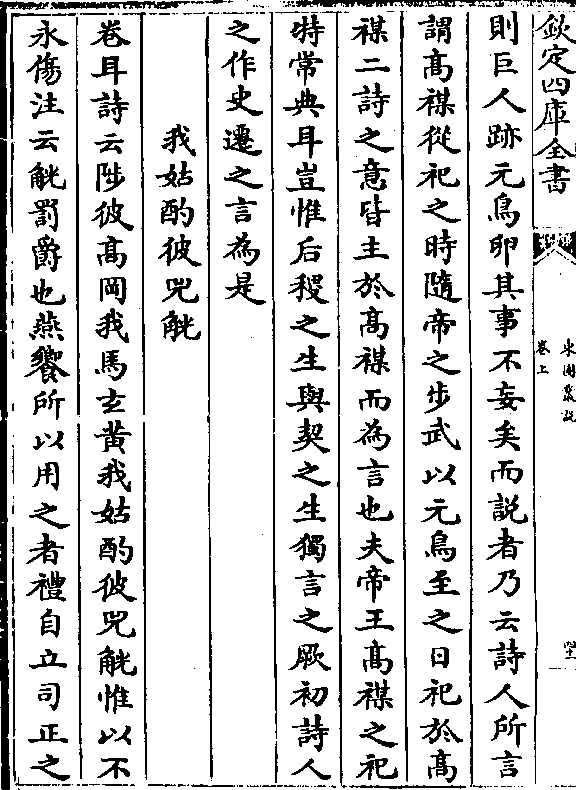 欽定四庫全書
東園叢説
卷上
則巨人跡元鳥卵其事不妄矣而説者乃云詩人所言
謂髙禖從祀之時隨帝之步武以元鳥至之日祀於髙
禖二詩之意皆主於髙禖而為言也夫帝王髙禖之祀
特常典耳豈惟后稷之生與契之生獨言之厥初詩人
之作史遷之言為是
我姑酌彼兕觥
卷耳詩云陟彼髙岡我馬玄黄我姑酌彼兕觥惟以不
永傷注云觥罰爵也燕饗所以用之者禮自立司正之